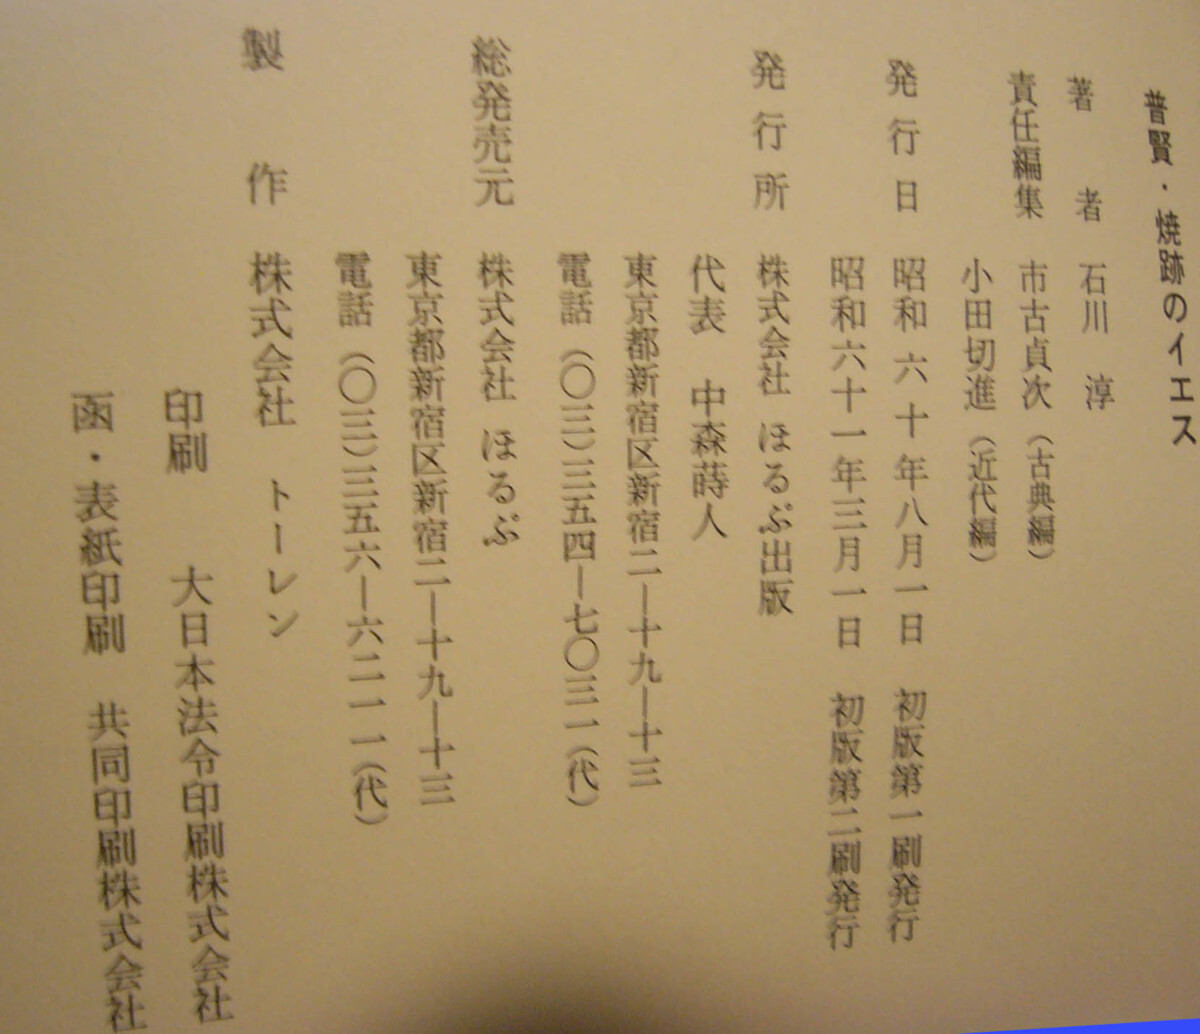 普賢・焼跡のイエス
著者 石川 淳
責任編集 市古貞次（古典編）
小田切進（近代編）
発行日 昭和六十年八月一日 初版第一刷発行
昭和六十一年三月一日 初版第二刷発行
発行所 株式会社 ほるぷ出版
代表 中森蒔人
東京都新宿区新宿二―十九―十三
電話（〇三）三五四―七〇三一（代）
総発売元 株式会社 ほるぷ
東京都新宿区新宿二―十九―十三
電話（〇三）三五六―六二一一（代）
製作 株式会社 トーレン
印刷 大日本法令印刷株式会社
函・表紙印刷 共同印刷株式会社